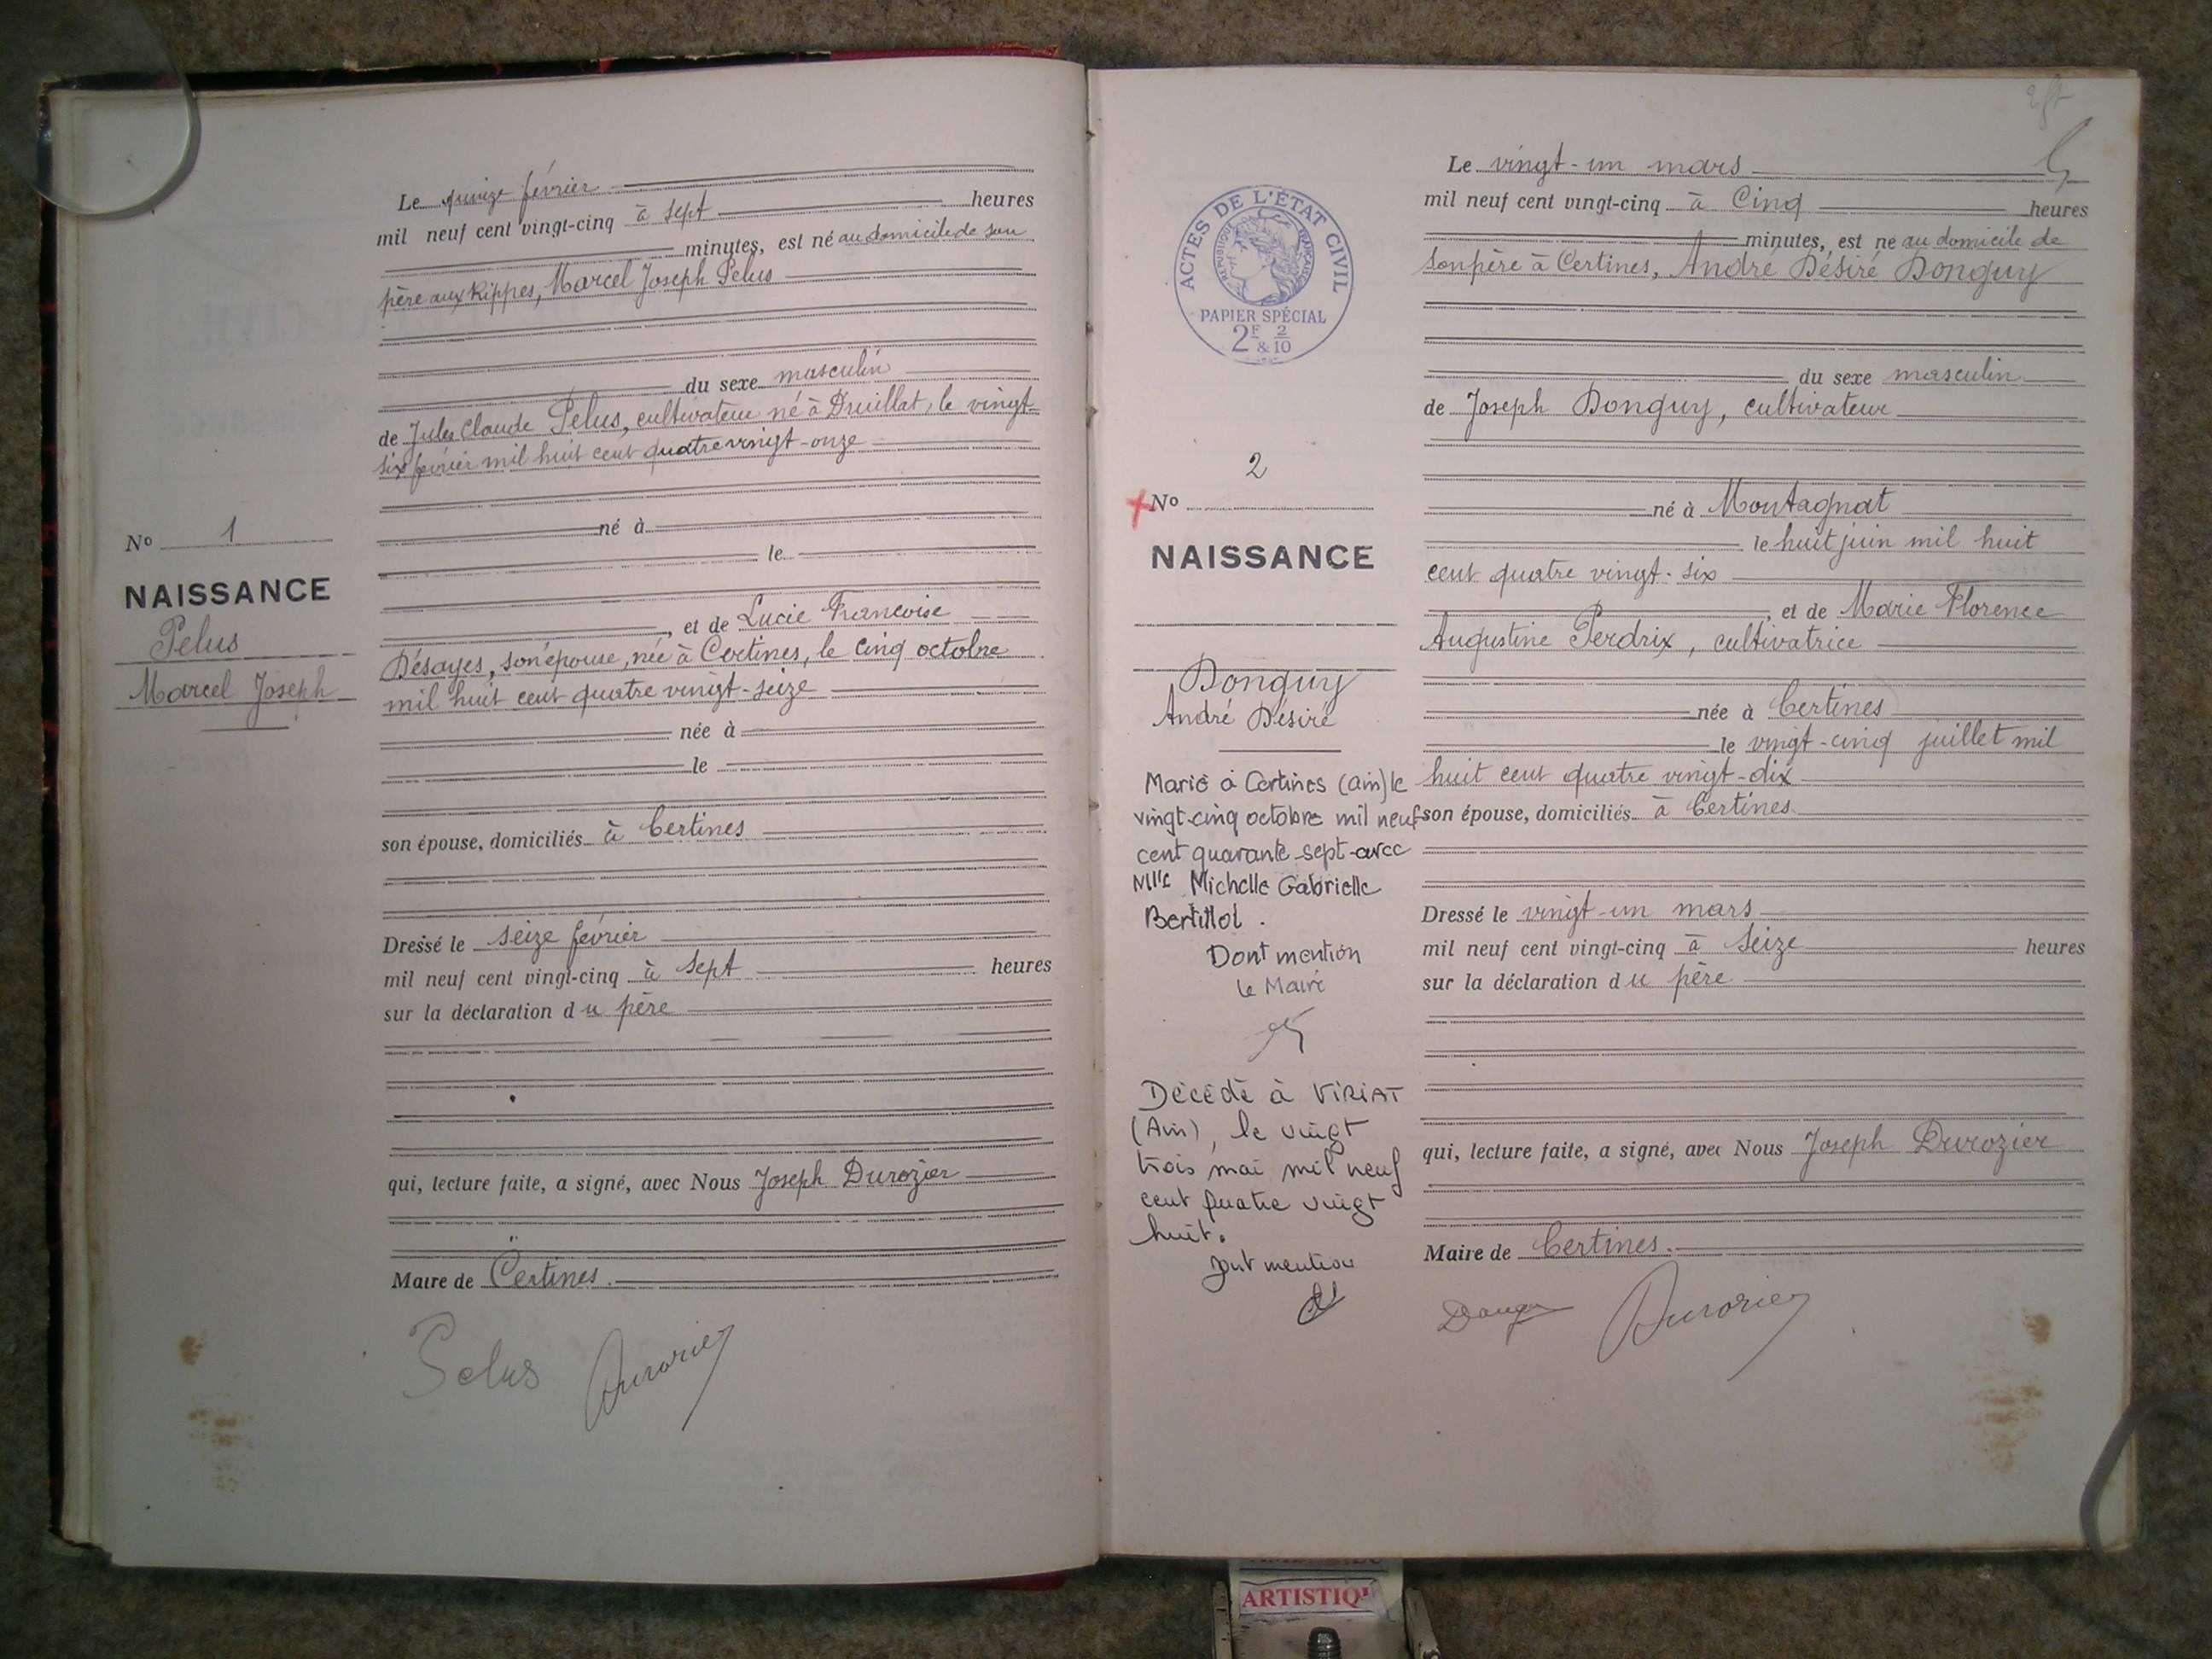 Le quinze février
mil neuf cent vingt-cinq à sept heures
minutes, est né au domicile de son
père aux Rippes, Marcel Joseph Pelus
du sexe masculin
de Jules Claude Pelus, cultivateur né à Druillat, le vingt
six février mil huit cent quatre vingt-onze
né à
le
No 1
NAISSANCE
Pelus
Marcel Joseph
, et de Lucie Francoise
Désayes, son épouse, née à Certines, le cinq octobre
mil huit cent quatre vingt-seize
née à
le
son épouse, domiciliés à Certines
Dressé le seize février
mil neuf cent vingt-cinq à sept heures
sur la déclaration du père
qui, lecture faite, a signé, avec Nous Joseph Durozier
Maire de Certines.
Pelus Durozier
Le vingt-un mars
mil neuf cent vingt-cinq à Cinq heures
minutes, est né au domicile de
son père à Certines, André Désiré Donguy
du sexe masculin
de Joseph Donguy, cultivateur
né à Montagnat
le huit juin mil huit
cent quatre vingt-six
, et de Marie Florence
Augustine Perdrix, cultivatrice
née à Certines
le vingt-cinq juillet mil
huit cent quatre vingt-dix
son épouse, domiciliés à Certines
Dressé le vingt-un mars
mil neuf cent vingt-cinq à seize heures
sur la déclaration du père
qui, lecture faite, a signé, avec Nous Joseph Durozier
Maire de Certines.
Durozier
ACTES DE L'ÉTAT CIVIL
RÉPUBLIQUE FRANÇAISE
PAPIER SPÉCIAL
2F & 2/10
No 2
NAISSANCE
Donguy
André Désiré
Marié à Certines (Ain) le
vingt-cinq octobre mil neuf
cent quarante-sept avec
Mlle Michelle Gabrielle
Bertillot.
Dont mention
Le Maire
Décédé à VIRIAT
(Ain), le vingt
trois mai mil neuf
cent quatre vingt
huit.
Dont mention
ARTISTIQ